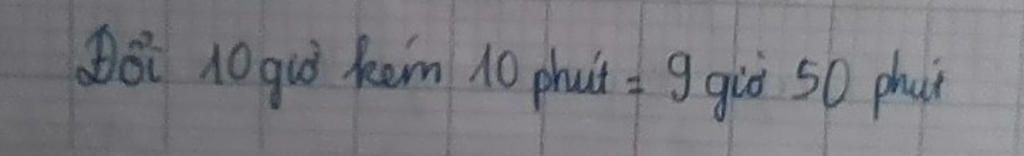 Đổi 10 giờ kém 10 phút = 9 giờ 50 phút